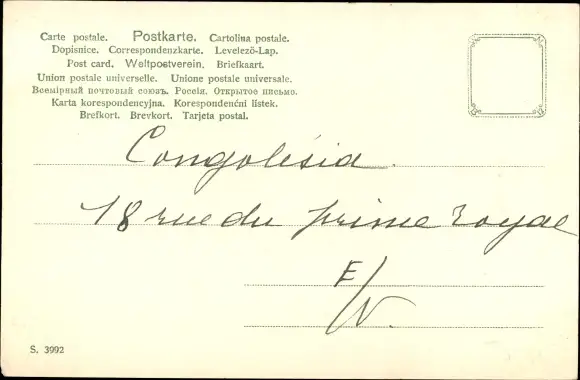 Carte postale. Postkarte. Cartolina postale.
Dopisnice. Correspondenzkarte. Levelező-Lap.
Post card. Weltpostverein. Briefkaart.
Union postale universelle. Unione postale universale.
Всемірный почтовый союзъ. Россія. Открытое письмо.
Karta korespondencyjna. Korespondenční lístek.
Brefkort. Brevkort. Tarjeta postal.
Congolésia.
18 rue du prince royae
E/V.
S. 3992